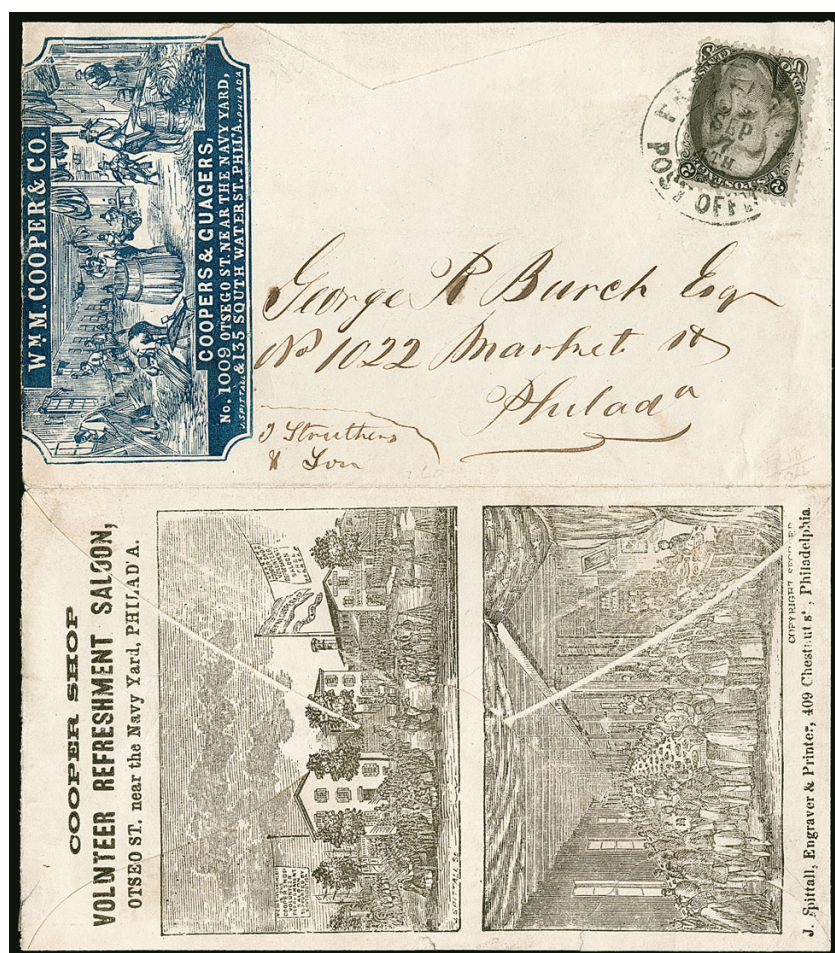 Wᴹ M. COOPER & CO.
COOPERS & GUAGERS,
No. 1009 OTSEGO ST. NEAR THE NAVY YARD,
& 135 SOUTH WATER ST. PHILA.
J. SPITTALL PHILADA
SEP
7
POST OFF
George R Burch Esq
No 1022 Market st
Philada
J Struthers
& Son
COOPER SHOP
VOLNTEER REFRESHMENT SALOON,
OTSEO ST. near the Navy Yard, PHILAD'A.
J. SPITTALL SC
COPYRIGHT SECURED
J. Spittall, Engraver & Printer, 409 Chestnut st, Philadelphia.